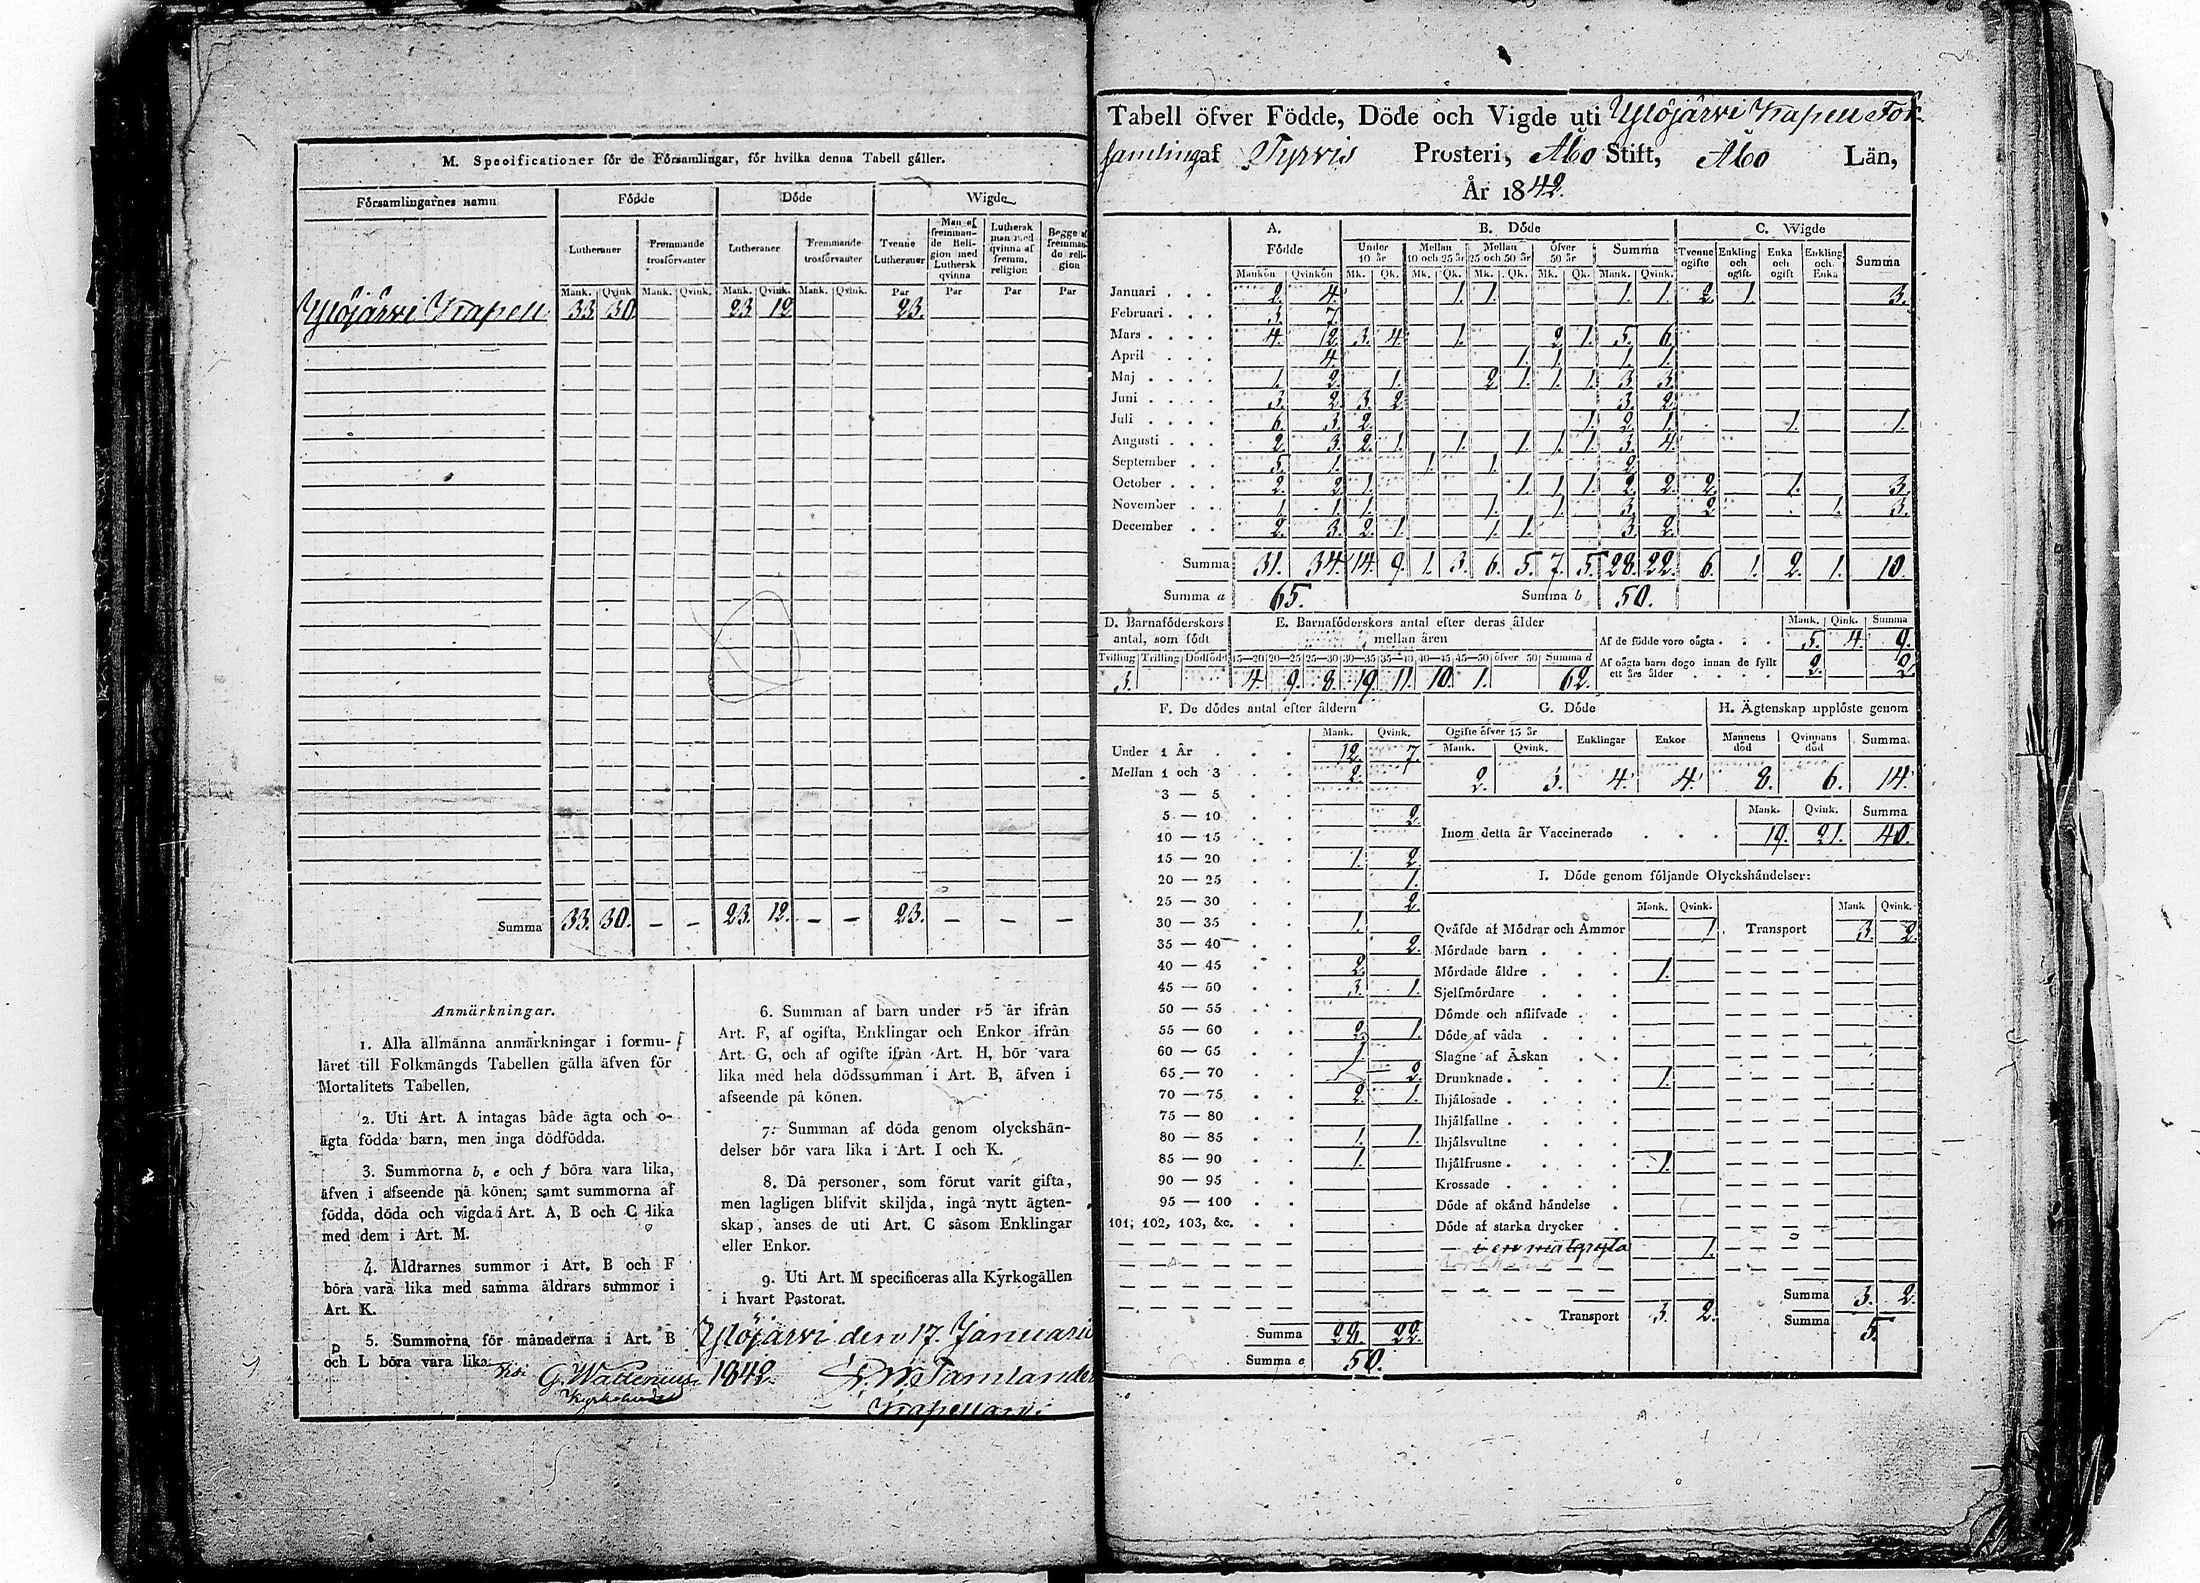 M. Specificationer för de Församlingar, för hvilka denna Tabell gäller.
Församlingarnes namn Födde Döde Wigde
Lutheraner Fremmande trosförvanter Lutheraner Fremmande trosförvanter Tvenne Lutheraner Man af fremmande Religion med Luthersk qvinna Luthersk man med qvinna af fremm. religion Begge af fremmande religion
Mank. Qvink. Mank. Qvink. Mank. Qvink. Mank. Qvink. Par Par Par Par
Ylöjärvi Kapell 33 30 23 12 23.
Summa 33. 30. — — 23. 12. — — 23. — — —
Anmärkningar.
1. Alla allmänna anmärkningar i formu-
läret till Folkmängds Tabellen gälla äfven för
Mortalitets Tabellen.
2. Uti Art. A intagas både ägta och o-
ägta födda barn, men inga dödfödda.
3. Summorna b, e och f böra vara lika,
äfven i afseende på könen; samt summorna af
födda, döda och vigda i Art. A, B och C lika
med dem i Art. M.
4. Åldrarnes summor i Art. B och F
böra vara lika med samma åldrars summor i
Art. K.
5. Summorna för månaderna i Art. B
och L böra vara lika.
6. Summan af barn under 15 år ifrån
Art. F, af ogifta, Enklingar och Enkor ifrån
Art. G, och af ogifte ifrån Art. H, bör vara
lika med hela dödssumman i Art. B, äfven i
afseende på könen.
7. Summan af döda genom olyckshän-
delser bör vara lika i Art. I och K.
8. Då personer, som förut varit gifta,
men lagligen blifvit skiljda, ingå nytt ägten-
skap, anses de uti Art. C såsom Enklingar
eller Enkor.
9. Uti Art. M specificeras alla Kyrkogällen
i hvart Pastorat.
Ylöjärvi den 17. Januarii
1842.
Vidi G. Wallenius
Kyrkoherde
Tamlander
Kapellan.
Tabell öfver Födde, Döde och Vigde uti Ylöjärvi Kapell För-
samling af Tyrvis Prosteri, Åbo Stift, Åbo Län,
År 1842.
A. Födde B. Döde C. Wigde
Under 10 år Mellan 10 och 25 år Mellan 25 och 50 år öfver 50 år Summa Tvenne ogifte Enkling och ogift Enka och ogift Enkling och Enka Summa
Mankön Qvinkön Mk. Qk. Mk. Qk. Mk. Qk. Mk. Qk. Mank. Qvink.
Januari 2. 4. 1. 1. 1. 1. 2. 1. 3.
Februari 3. 7.
Mars 4. 12. 3. 4. 1. 2. 1. 5. 6.
April 4. 1. 1. 1. 1.
Maj 1. 2. 1. 2. 1. 1. 1. 3. 3.
Juni 3. 2. 3. 2. 3. 2.
Juli 6. 3. 2. 1. 2. 1. 1. 1.
Augusti 2. 3. 2. 1. 1. 1. 1. 1. 3. 4.
September 5. 1. 1. 1. 2.
October 2. 2. 1. 1. 1. 1. 2. 2. 2. 1. 3.
November 1. 1. 1. 1. 1. 3. 2. 1. 3.
December 2. 3. 2. 1. 1. 1. 3. 2.
Summa 31. 34. 14. 9. 1. 3. 6. 5. 7. 5. 28. 22. 6. 1. 2. 1. 10.
Summa a 65. Summa b 50.
D. Barnaföderskors antal, som födt
Tvilling Trilling Dödfödt
3.
E. Barnaföderskors antal efter deras ålder mellan åren
15—20 20—25 25—30 30—35 35—40 40—45 45—50 öfver 50 Summa d
4. 9. 8. 19. 11. 10. 1. 62.
Mank. Qink. Summa
Af de födde voro oägta 5. 4. 9.
Af oägta barn dogo innan de fyllt ett års ålder 2. 2.
F. De dödes antal efter åldern
Mank. Qvink.
Under 1 År 12. 7.
Mellan 1 och 3 2.
3 — 5
5 — 10 2.
10 — 15
15 — 20 1. 2.
20 — 25 1.
25 — 30 2.
30 — 35 1.
35 — 40 2.
40 — 45 2.
45 — 50 3. 1.
50 — 55
55 — 60 2. 1.
60 — 65 1.
65 — 70 2.
70 — 75 2. 1.
75 — 80
80 — 85 1. 1.
85 — 90 1.
90 — 95
95 — 100
101, 102, 103, &c.
Summa 28. 22.
Summa e 50.
G. Döde
Ogifte öfver 15 år Enklingar Enkor
Mank. Qvink.
2. 3. 4. 4.
H. Ägtenskap upplöste genom
Mannens död Qvinnans död Summa
8. 6. 14.
Mank. Qvink. Summa
Inom detta år Vaccinerade 19. 21. 40.
I. Döde genom följande Olyckshändelser:
Mank. Qvink. Mank Qvink.
Qväfde af Mödrar och Ammor 1. Transport 3. 2.
Mördade barn
Mördade äldre 1.
Sjelfmördare
Dömde och aflifvade
Döde af våda
Slagne af Åskan
Drunknade 1.
Ihjälosade
Ihjälfallne
Ihjälsvultne
Ihjälfrusne 1.
Krossade
Döde af okänd händelse
Döde af starka drycker
i en matgryta 1.
Summa 3. 2.
Transport 3. 2. Summa 5.